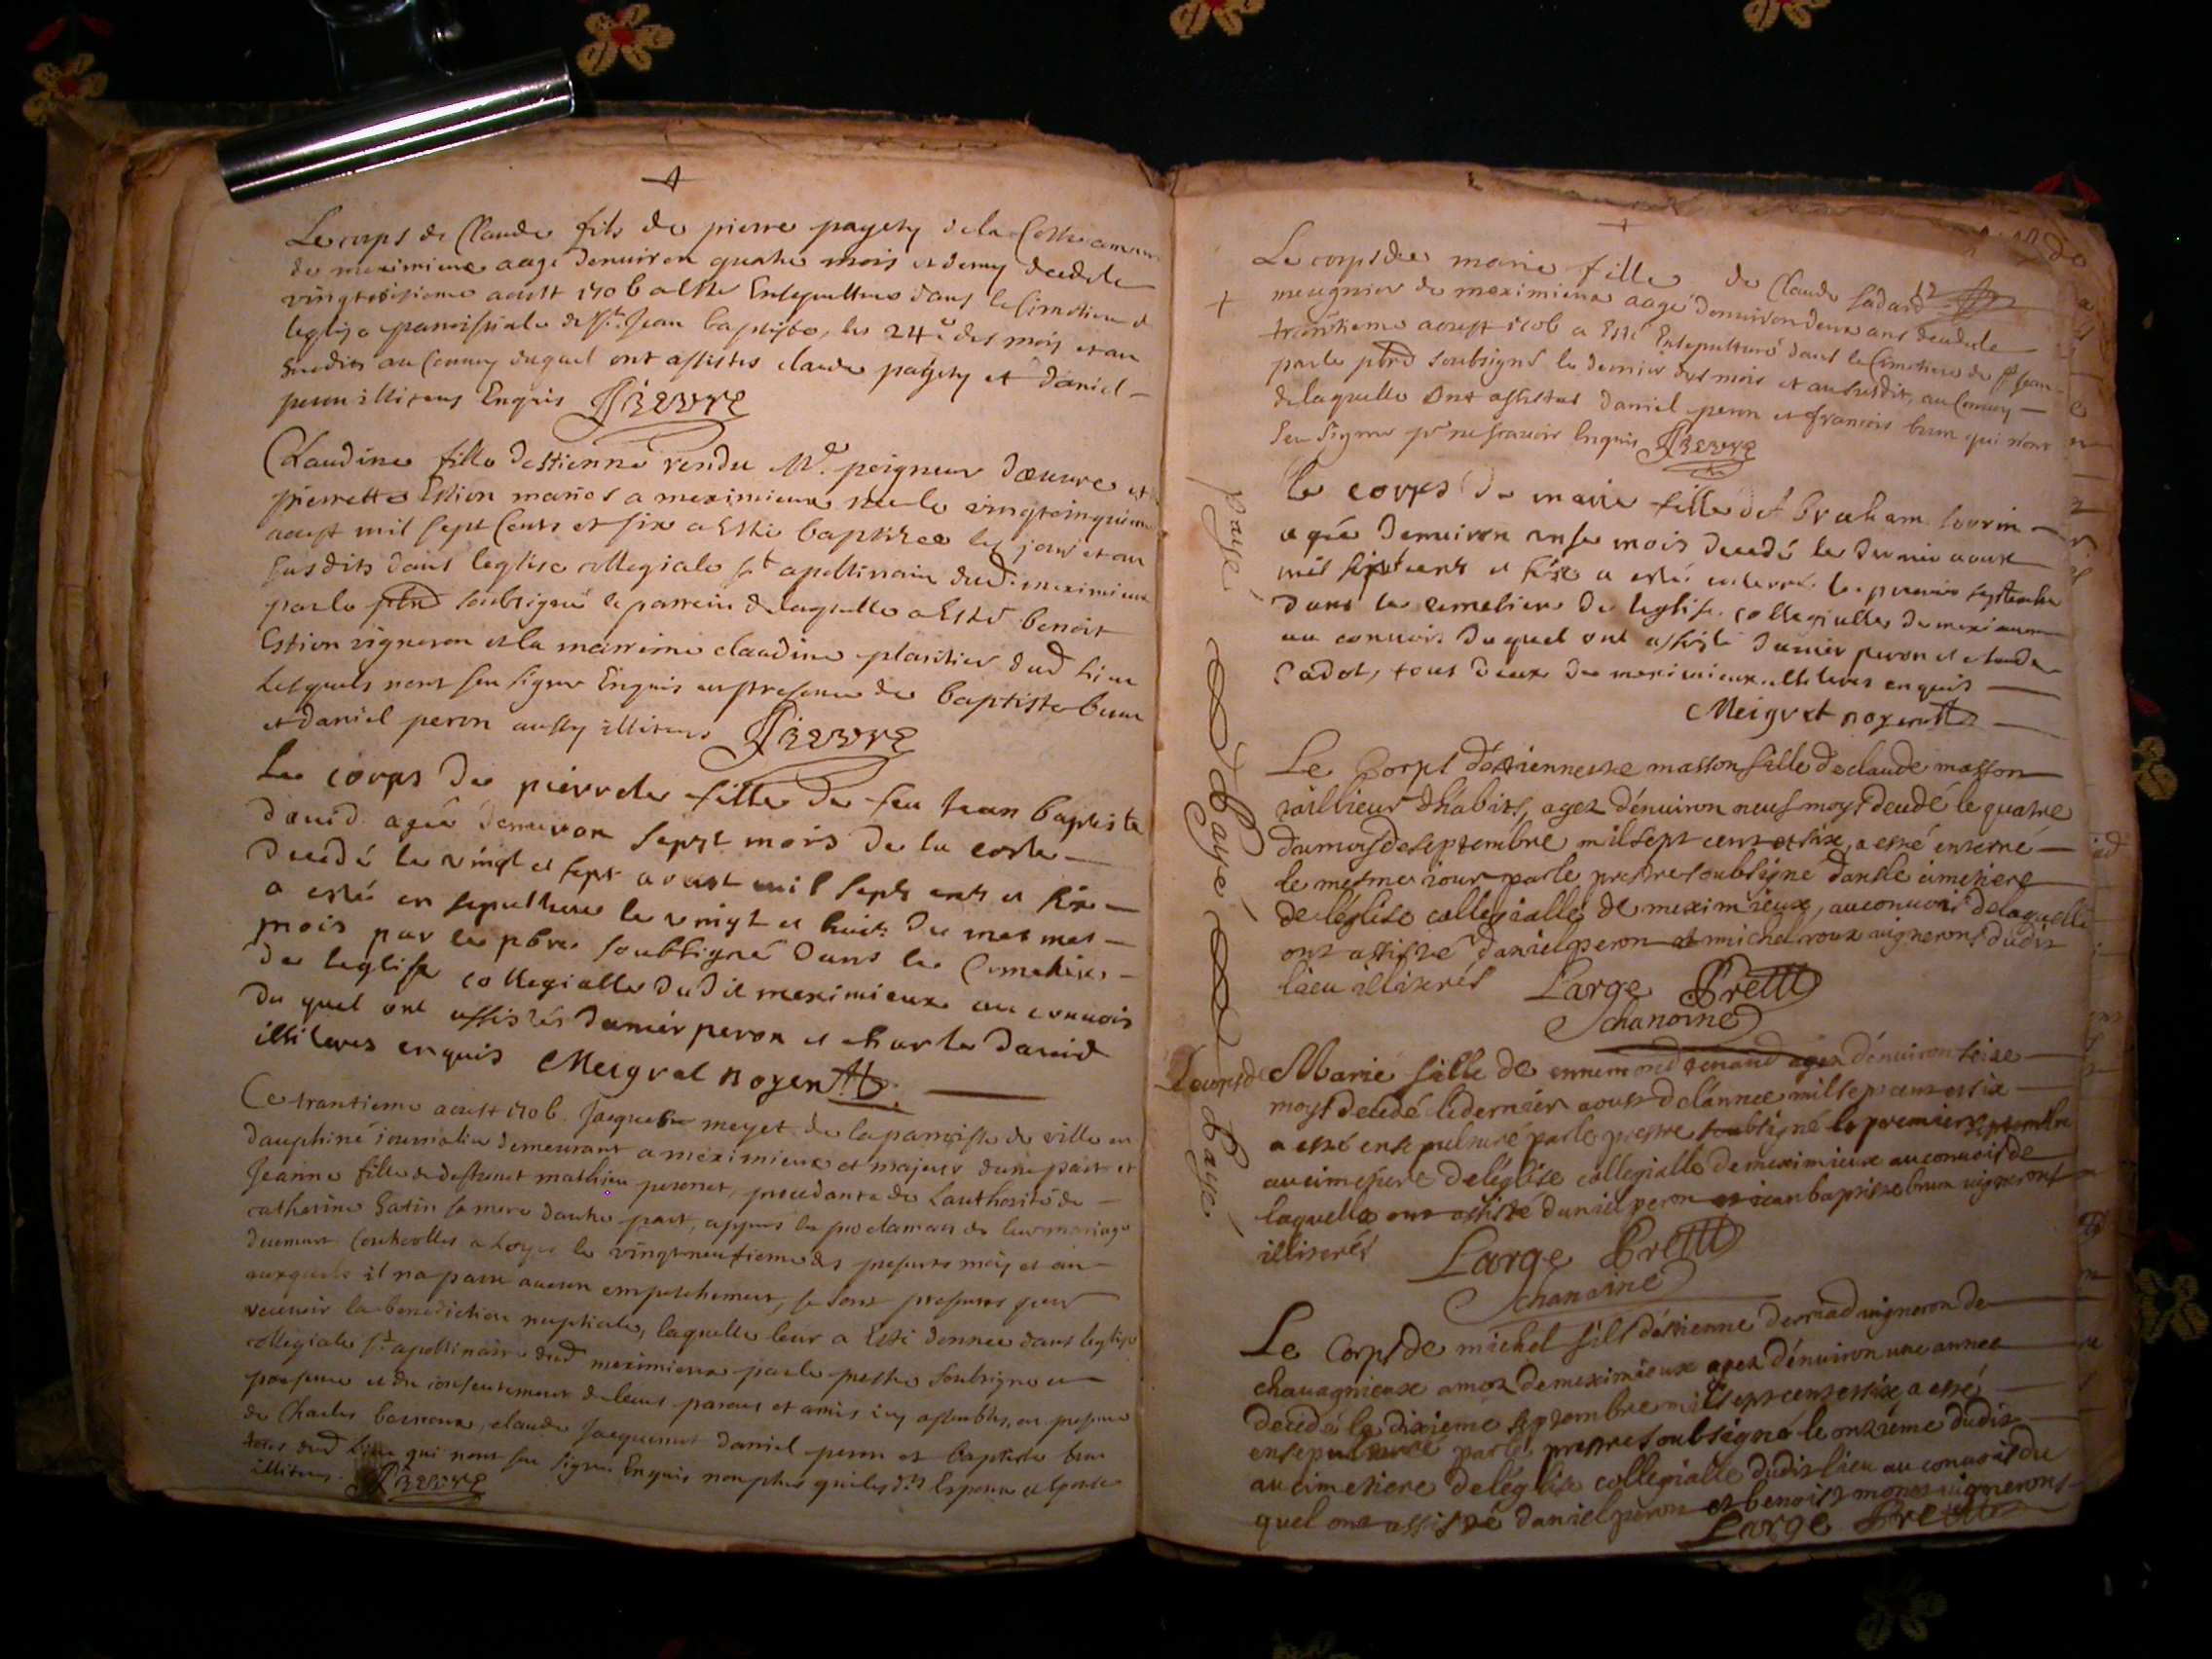 Le corps de Claude fils de pierre pagety de la Coste
de meximieux aagé denuiron quatre mois et demy decedé le
aoust 1706 a este Ensepulturé dans le Cimetiere de
leglise parroissiale de St Jean baptiste, les 24e des mois et an
susdits au Conuoy duquel ont assistes claude pagety et daniel
peron illiteres Enquis
Claudine fille destienne rendu Me peigneur dœuure et
pierrette Estion mariés a meximieux née le vingtcinquieme
aoust mil sept Cents et six a Esté baptisée les jour et an
susdits dans leglise collegiale St apollinaire dud. meximieux
par le pbre soubsigné le parrein de laquelle a Esté benoist
Estion vigneron et la marreine claudine dud lieu
lesquels nont sceu signer Enquis en presence de baptiste brun
et daniel peron aussy illiteres
Le corps de pierrete fille de feu Jean baptiste
dauid agée denuiron sept mois de la coste
decedé le vingt et sept aoust mil sept cents et six
a esté en sepulture le vingt et huit du mesmes
mois par le pbre soubsigné dans le Cimetiere
de leglise collegialle dudit meximieux au conuois
du quel ont assistés damier peron et charle dauid
illiteres enquis Meigret
Ce trantieme aoust 1706. Jacques meyet de la parroisse de ville en
dauphiné journalier demeurant a meximieux et majeur dune part et
Jeanne fille de deffunct mathieu peronet, procedante de Lauthorité de
catherine Gatin sa mere dautre part, appres les proclamaõns de leur mariage
deument Controollés a Loyes le vingtneufieme des presents mois et an
auxquels il na paru aucun empeschement, se sont presentes pour
receuoir la benediction nuptiale, laquelle leur a Esté donnée dans leglise
collegiale St apollinaire dud meximieux par le prestre soubsigné en
presence et du consentement de leurs parens et amis icy assemblés, en presence
de Charles, claude Jacquemet daniel peron et baptiste brun
tous dud lieu qui nont sceu signer Enquis non plus que lesdts Espoux et Espouse
illiteres.
Le corps de marie fille de Claude
12
meugnier de meximieux aagé denuiron deux ans decedé le
trentieme aoust 1706 a Esté Ensepulturé dans le Cimetiere de St Jean
par le pbre soubsigné le dernier des mois et an susdit, au Conuoy
de laquelle ont assistés daniel peron et francois brun qui nont
sceu signer pr ne scauoir Enquis
Le corps de marie fille dabraham
agée denuiron onse mois decedé le dernier aoust
mil sept cents et sise a esté enterré le premier septembre
dans le cemetiere de leglise collegialle de meximieux
au conuois duquel ont assisté damier peron et claude
Cadot, tous deux de meximieux illiteres enquis
Meigret
payé
payé
Le Corps déstiennette masson fille de claude masson
taillieur dhabits, agez dénuiron neuf moys decedé le quatre
du moys de septembre mil sept cent et six, a esté enterré
le mesme iour par le prestre soubsigné dans le cimetiere
de léglise collegialle de meximieux, au conuois de laquelle
ont assisté daniel peron et michel roux uignerons dudit
lieu illiterés Large Pretre
chanoine
Le corps de Marie fille de ennemond renaud agez dénuiron seize
moys decedé le dernier aoust de lannee mil sept cent et six
a esté ensepulturé par le prestre soubsigné le premier septembre
au cimetiere de léglise collegialle de meximieux au conuois de
laquelle ont assisté daniel peron et iean baptiste brun uignerons
illiterés Large Pretre
chanoine
payé
Le Corps de michel fils déstienne uigneron de
chauagnieux de meximieux agez dénuiron une annee
decedé le dixieme septembre mil sept cent et six a esté
ensepulturé par le prestre soubsigné le onzieme dudit
au cimetiere de léglise collegialle dudit lieu au conuois du
quel ont assisté daniel peron et benoist monet uignerons
Large Pretre